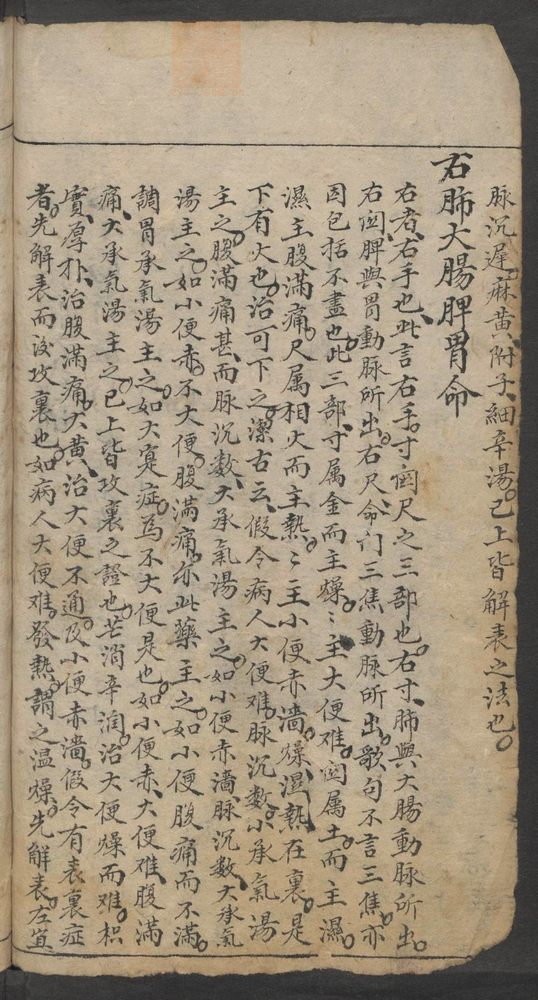 脉沉遲。麻黄附子細辛湯。已上皆解表之法也。
右肺大腸脾胃命
右者、右手也、此言右手。寸関尺之三部也。右寸、肺與大腸動脉所出。
右関、脾與胃動脉所出。右尺、命门三焦動脉所出。歌句不言三焦、亦
因包括不盡也。此三部、寸属金而主燥。〻主大便难。関属土而主濕。
濕主腹滿痛。尺属相火而主熱。〻主小便赤濇。燥、濕、熱、在裏。是
下有火也。治可下之。潔古云、假令病人大便难。脉沉数。小承氣湯
主之。腹滿痛甚、而脉沉数、大承氣湯主之。如小便赤濇脉沉数、大承氣
湯主之。如小便赤、不大便。腹滿痛。亦此藥主之。如小便腹痛而不滿。
調胃承氣湯主之。如大寔症。為不大便是也。如小便赤、大便难、腹滿
痛、大承氣湯主之。已上皆攻裏之證也。芒消辛润。治大便燥而难。枳
實、厚朴、治腹滿痛。大黄、治大便不通。及小便赤濇。假令有表裏症
者。先解表而後攻裏也。如病人大便难。發熱。謂之温燥。先解表。左宜